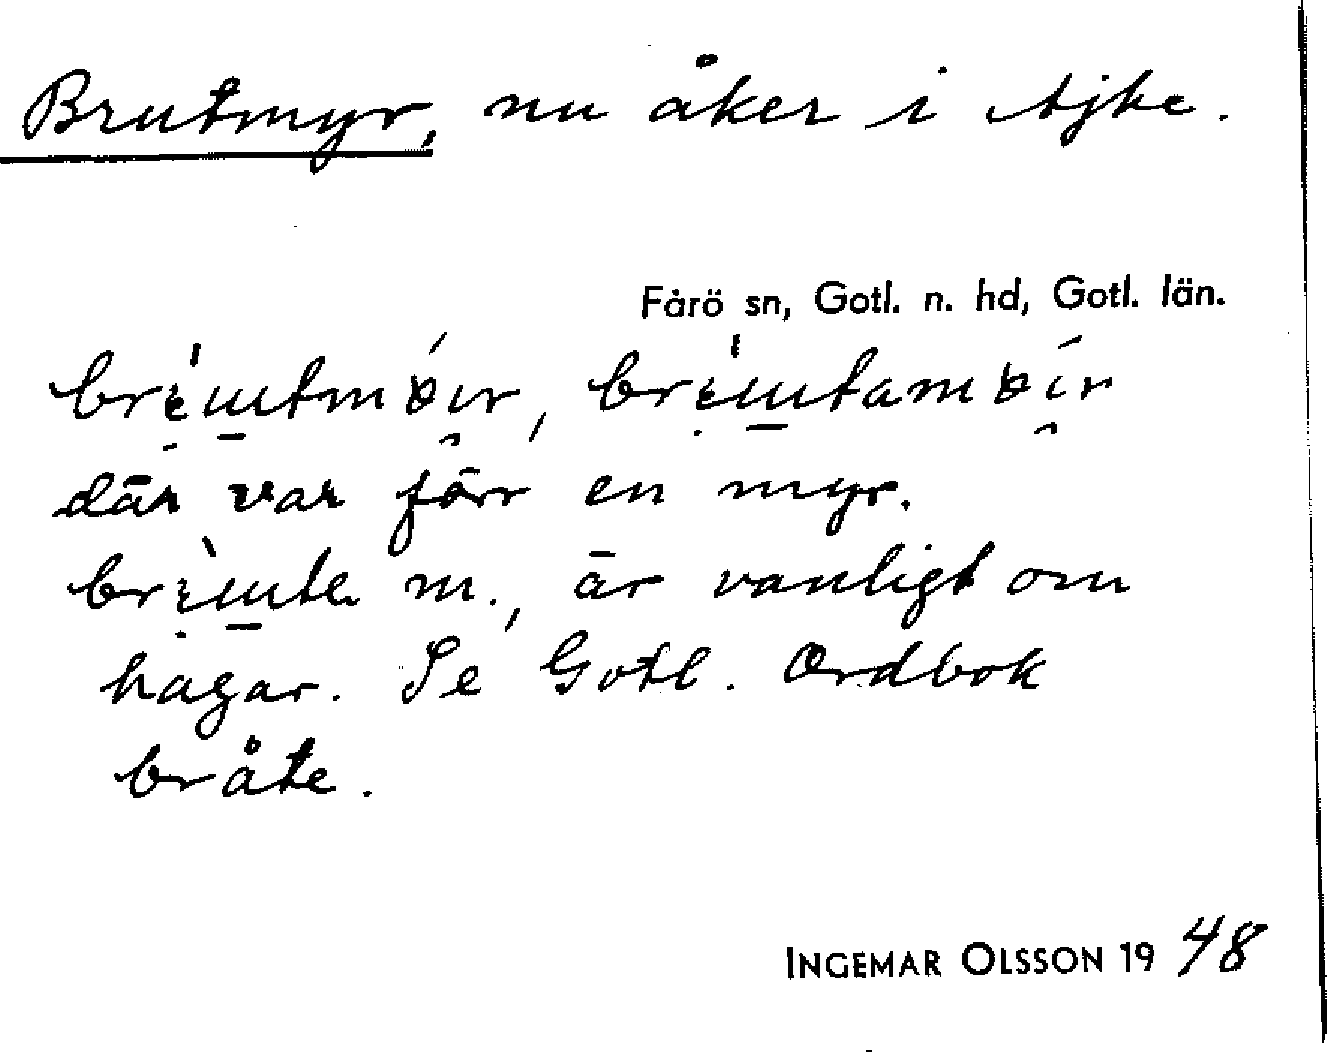 Brutmyr, nu åker i Ajke.
Fårö sn, Gotl. n. hd, Gotl. län.
där var förr en myr.
m., är vanligt om
hagar. Se Gotl. Ordbok
bråte.
INGEMAR OLSSON 19 48